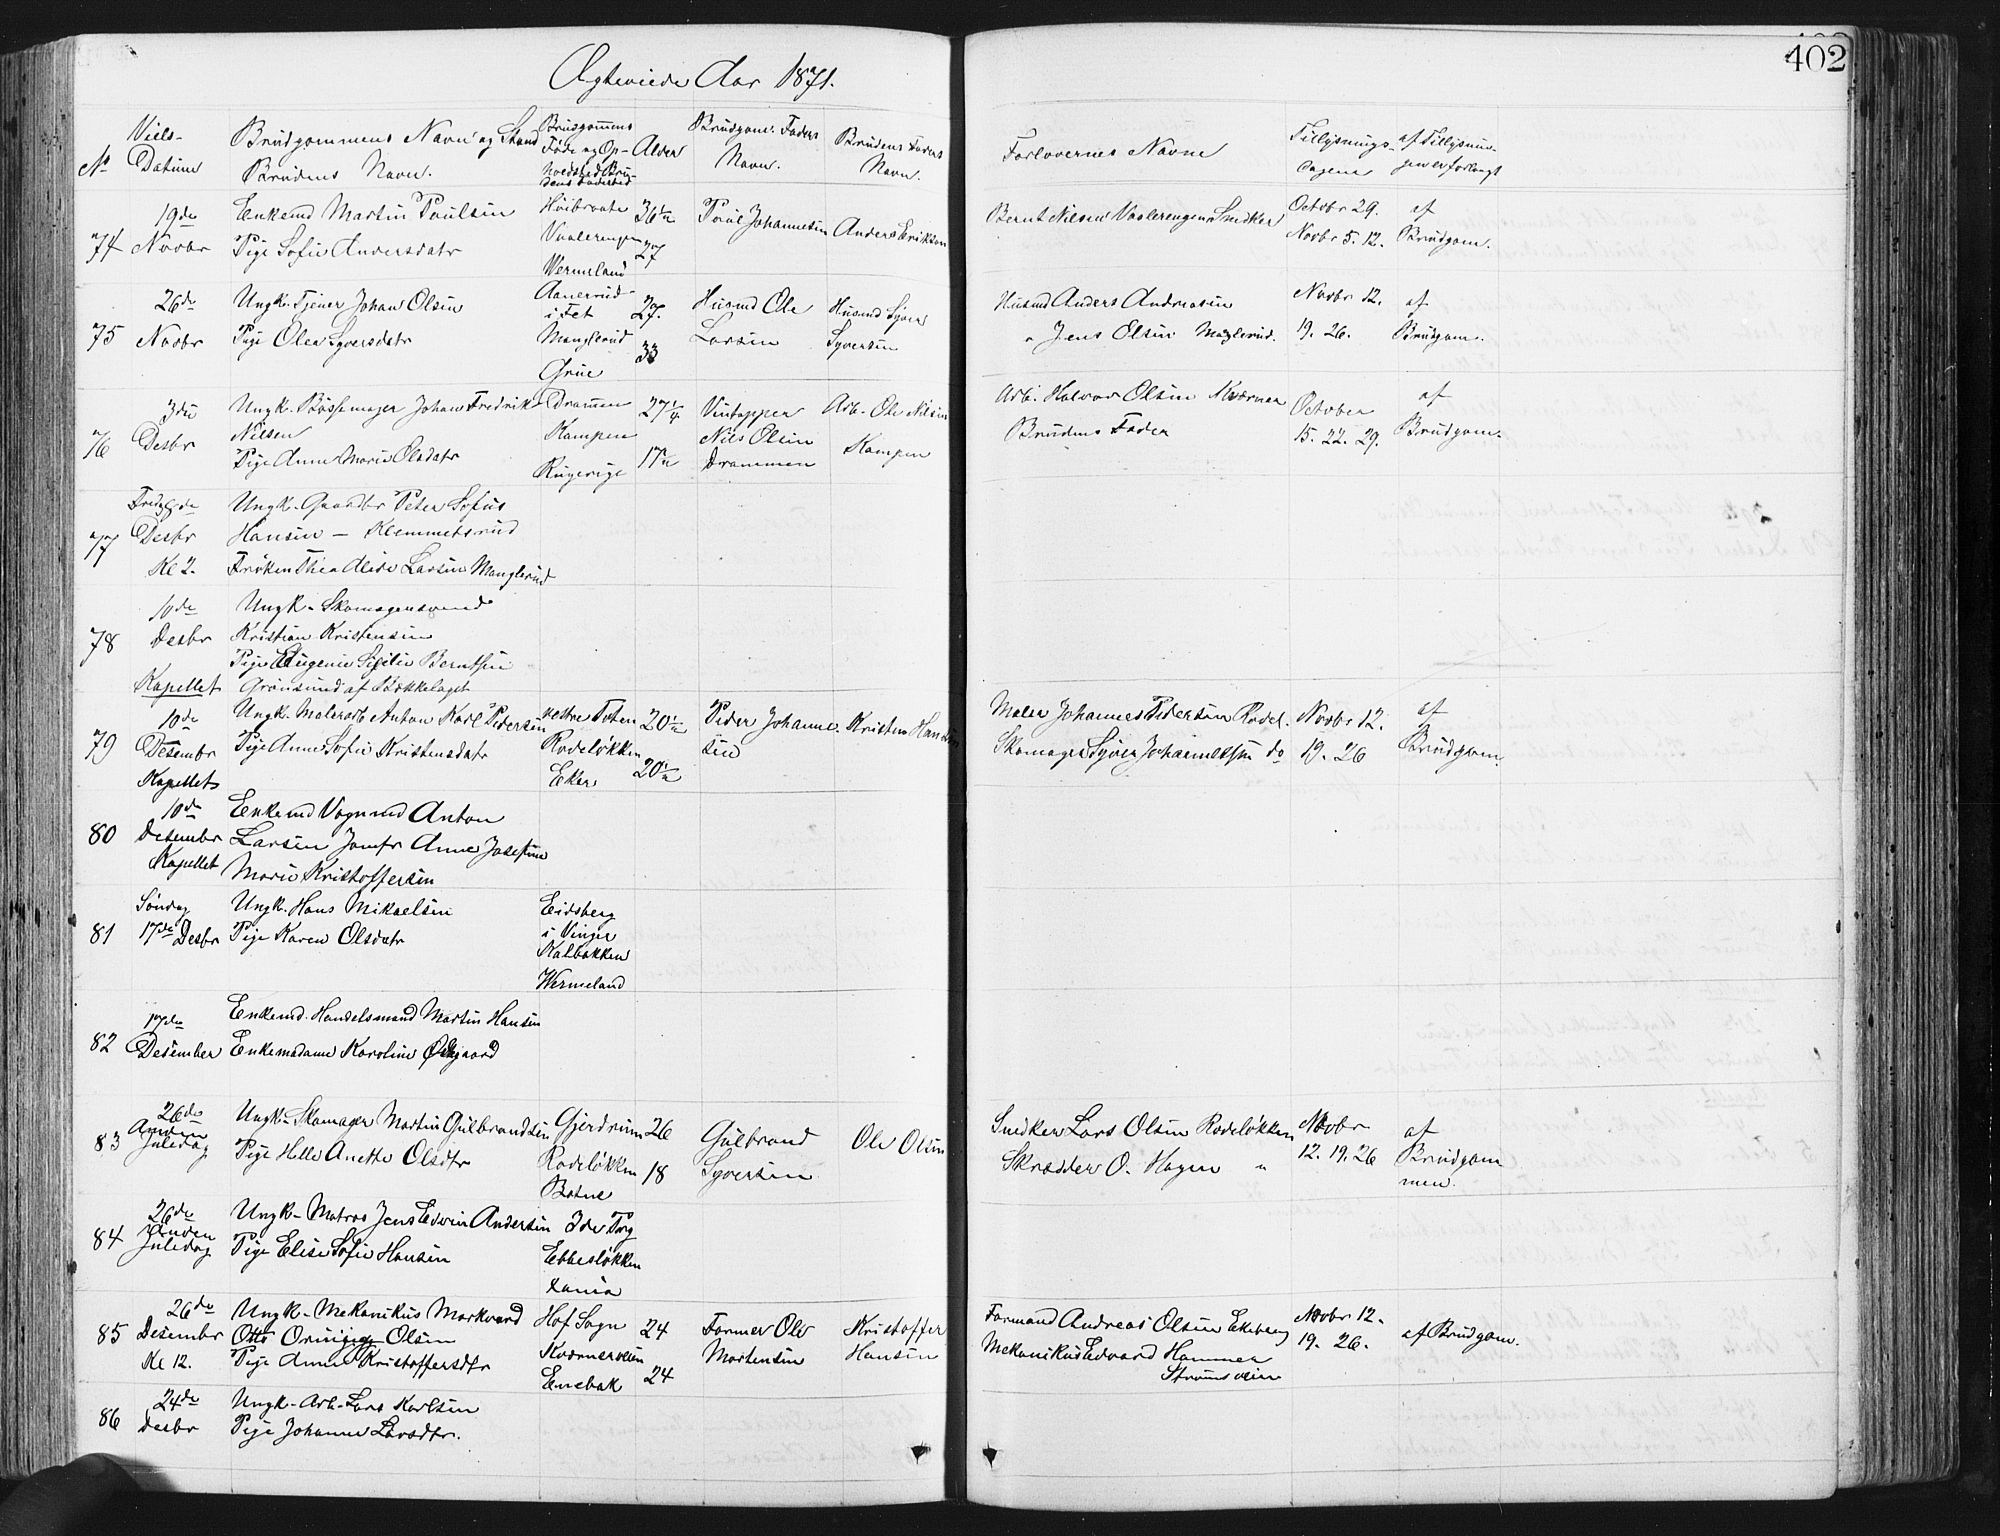 Ægteviede Aar 1871.
402
No
Viels-
Datum
Brudgommens Navn og Stand
Brudens Navn.
Brudgommens
Føde og Op-
holdssted Bru-
dens Fødested
Alder
Brudgom. Faders
Navn.
Brudens Faders
Navn.
Forlovernes Navne
Tillysnings-
dagene
af Tillysnin-
gen er forlangt
74
19de
Novbr
Enkemd Martin Paulsen
Pige Sofie Andersdatr
Høibraate
Vaalerengen
Wermland
36 1/2
27
Paul Johannesen
Anders Erikson
Bernt Nilsen Vaalerengen Snedker
Octobr 29.
Novbr 5. 12.
af
Brudgom.
75
26de
Novbr
Ungk. Tjener Johan Olsen
Pige Olea Syversdatr
Aanerud
i Fet
Manglerud
Grue
27.
33
Husmd Ole
Larsen
Husmd Syver
Syversen
Husmd Anders Andreasen
" Jens Olsen Manglerud.
Novbr 12.
19. 26.
af
Brudgom.
76
3die
Desbr
Ungk. Bøssemager Johan Fredrik
Nilsen
Pige Anne Marie Olsdatr
Drammen
Kampen
Ringerige
27 1/4
17 1/2
Vintapper
Nils Olsen
Drammen
Arb. Ole Nilsen
Kampen
Arb. Halvor Olsen Kværner
Brudens Fader
October
15. 22. 29.
af
Brudgom.
77
Desbr
Kl 2.
Ungk. Gaardbr Peter Sofus
Hansen — Klemmetsrud
Frøken Thea Alide Larsen Manglerud
78
10de
Desbr
Kapellet
Ungk. Skomagersvend
Kristian Kristensen
Pige Eugenie Sesilie Berntsen
Grønsund af Bækkelaget
79
10de
Desembr
Kapellet
Ungk. Malerarb Anton Karl Pedersen
Pige Anne Sofie Kristensdatr
vestre Toten
Rodeløkken
Eker
20 1/2
20 1/2
Peder Johanne-
sen
Kristen Hansen
Maler Johannes Pedersen Rodel.
Skomager Syver Johannessen do
Novbr 12.
19. 26
af
Brudgom.
80
10de
Desembr
Kapellet
Enkemd Vognmd Anton
Larsen Jomfr Anne Josefine
Marie Kristoffersen
81
Søndag
17de Desbr
Ungk. Hans Mikaelsen
Pige Karen Olsdatr
Eidsberg
i Vinger
Kalbakken
Wermeland
82
17de
Desember
Enkemd. Handelsmand Martin Hansen
Enkemadame Karoline Ødegaard
83
26de
Anden
Juledag
Ungk. Skomager Martin Gulbrandsen
Pige Helle Anette Olsdtr
Gjerdrum
Rodeløkken
Botne
26
18
Gulbrand
Syversen
Ole Olsen
Snedker Lars Olsen Rodeløkken
Skrædder O. Hagen "
Novbr
12. 19. 26
af
Brudgom-
men.
84
26de
Anden
Juledag
Ungk. Matros Jens Edvin Andersen
Pige Elise Sofie Hansen
Ide Torg
Ebbesløkken
Lania
85
26de
Desember
Kl 12.
Ungk. Mekanikus Markvard
Otto Olsen
Pige Anne Kristoffersdtr
Hof Sogn
Kværnerveien
Enebak
24
24
Former Ole
Mortensen
Kristoffer
Hansen
Formand Andreas Olsen Ekeberg
Mekanikus Edvard Hammer
Strømsveien
Novbr 12.
19. 26.
af Brudgom.
86
24de
Desbr
Ungk. Arb. Lars Karlsen
Pige Johanne Larsdtr.